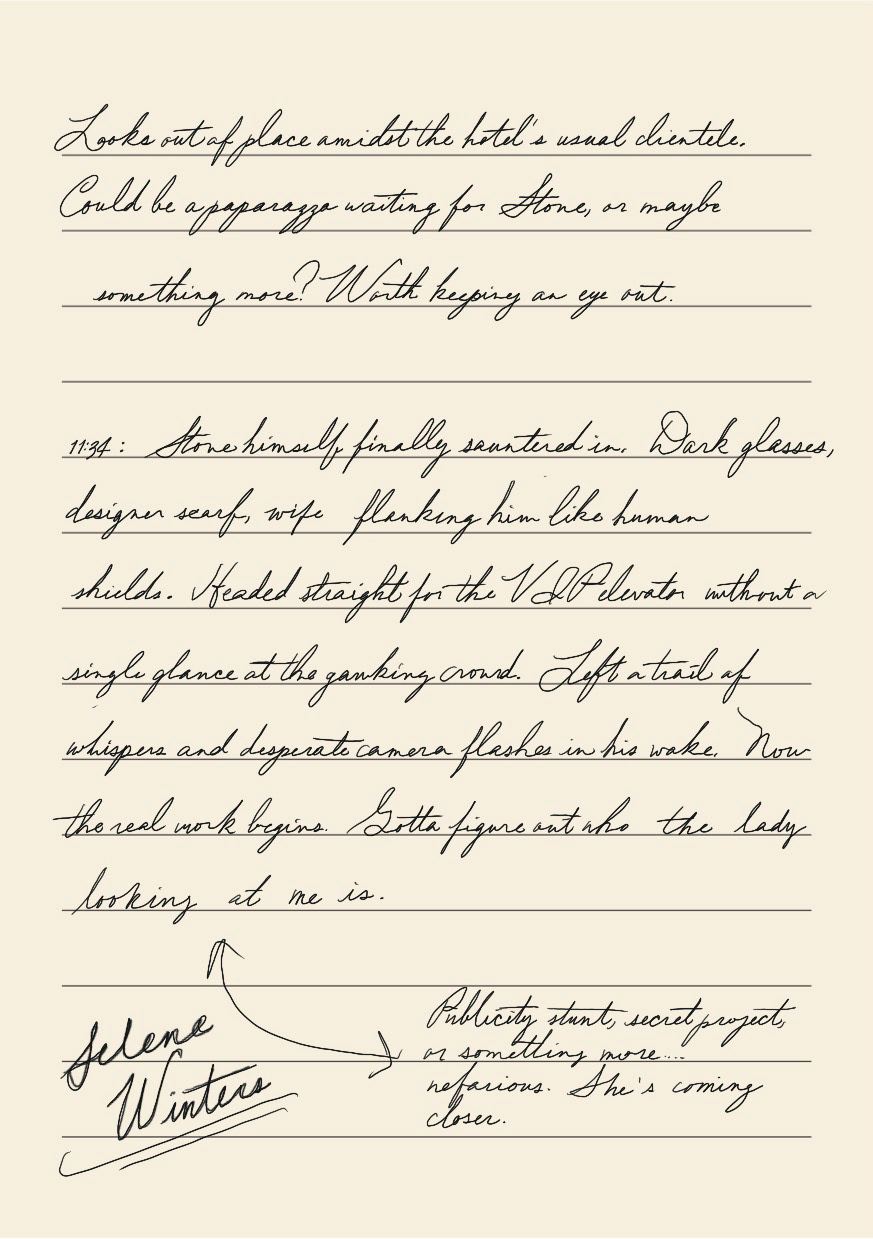 Looks out of place amidst the hotel's usual clientele.
Could be a paparazzo waiting for Stone, or maybe
something more? Worth keeping an eye out.
11:34: Stone himself finally sauntered in. Dark glasses,
designer scarf, wife flanking him like human
shields. Headed straight for the VIP elevator without a
single glance at the gawking crowd. Left a trail of
whispers and desperate camera flashes in his wake. Now
the real work begins. Gotta figure out who the lady
looking at me is.
Publicity stunt, secret project,
or something more...
nefarious. She's coming
closer.
Selene
Winters